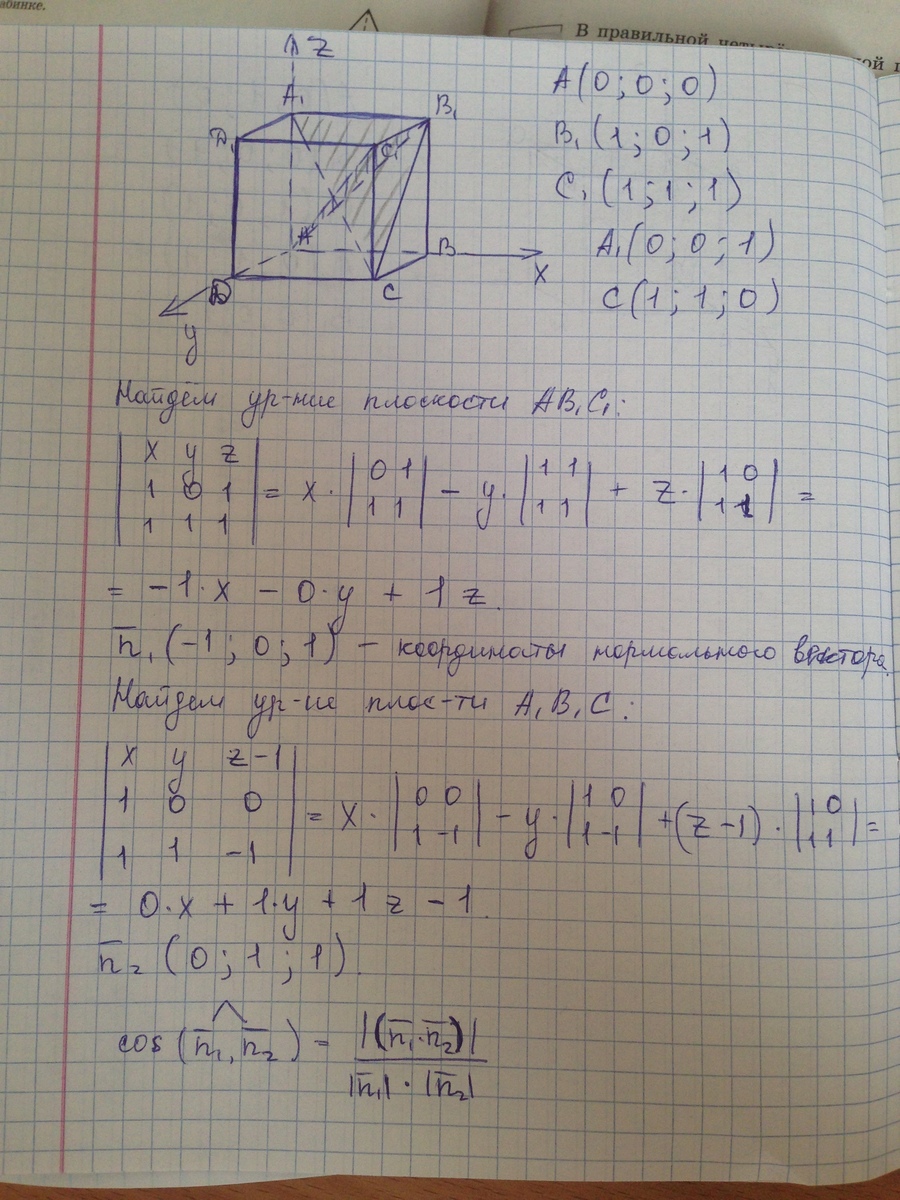 абинке.
В правильной четыр
ной п
Z
A₁
B₁
D₁
C₁
A
B
X
D
C
y
A(0; 0; 0)
B₁(1; 0; 1)
C₁(1; 1; 1)
A₁(0; 0; 1)
C(1; 1; 0)
Найдём ур-ние плоскости AB₁C₁:
|x y z; 1 0 1; 1 1 1| = x·|0 1; 1 1| - y·|1 1; 1 1| + z·|1 0; 1 1| =
= -1·x - 0·y + 1z.
n̅₁(-1; 0; 1) - координаты нормального вектора.
Найдем ур-ие плос-ти A₁B₁C:
|x y z-1; 1 0 0; 1 1 -1| = x·|0 0; 1 -1| - y·|1 0; 1 -1| + (z-1)·|1 0; 1 1| =
= 0·x + 1·y + 1z - 1.
n̅₂(0; 1; 1).
cos(n̅₁, n̅₂) = |(n̅₁·n̅₂)| / |n̅₁|·|n̅₂|